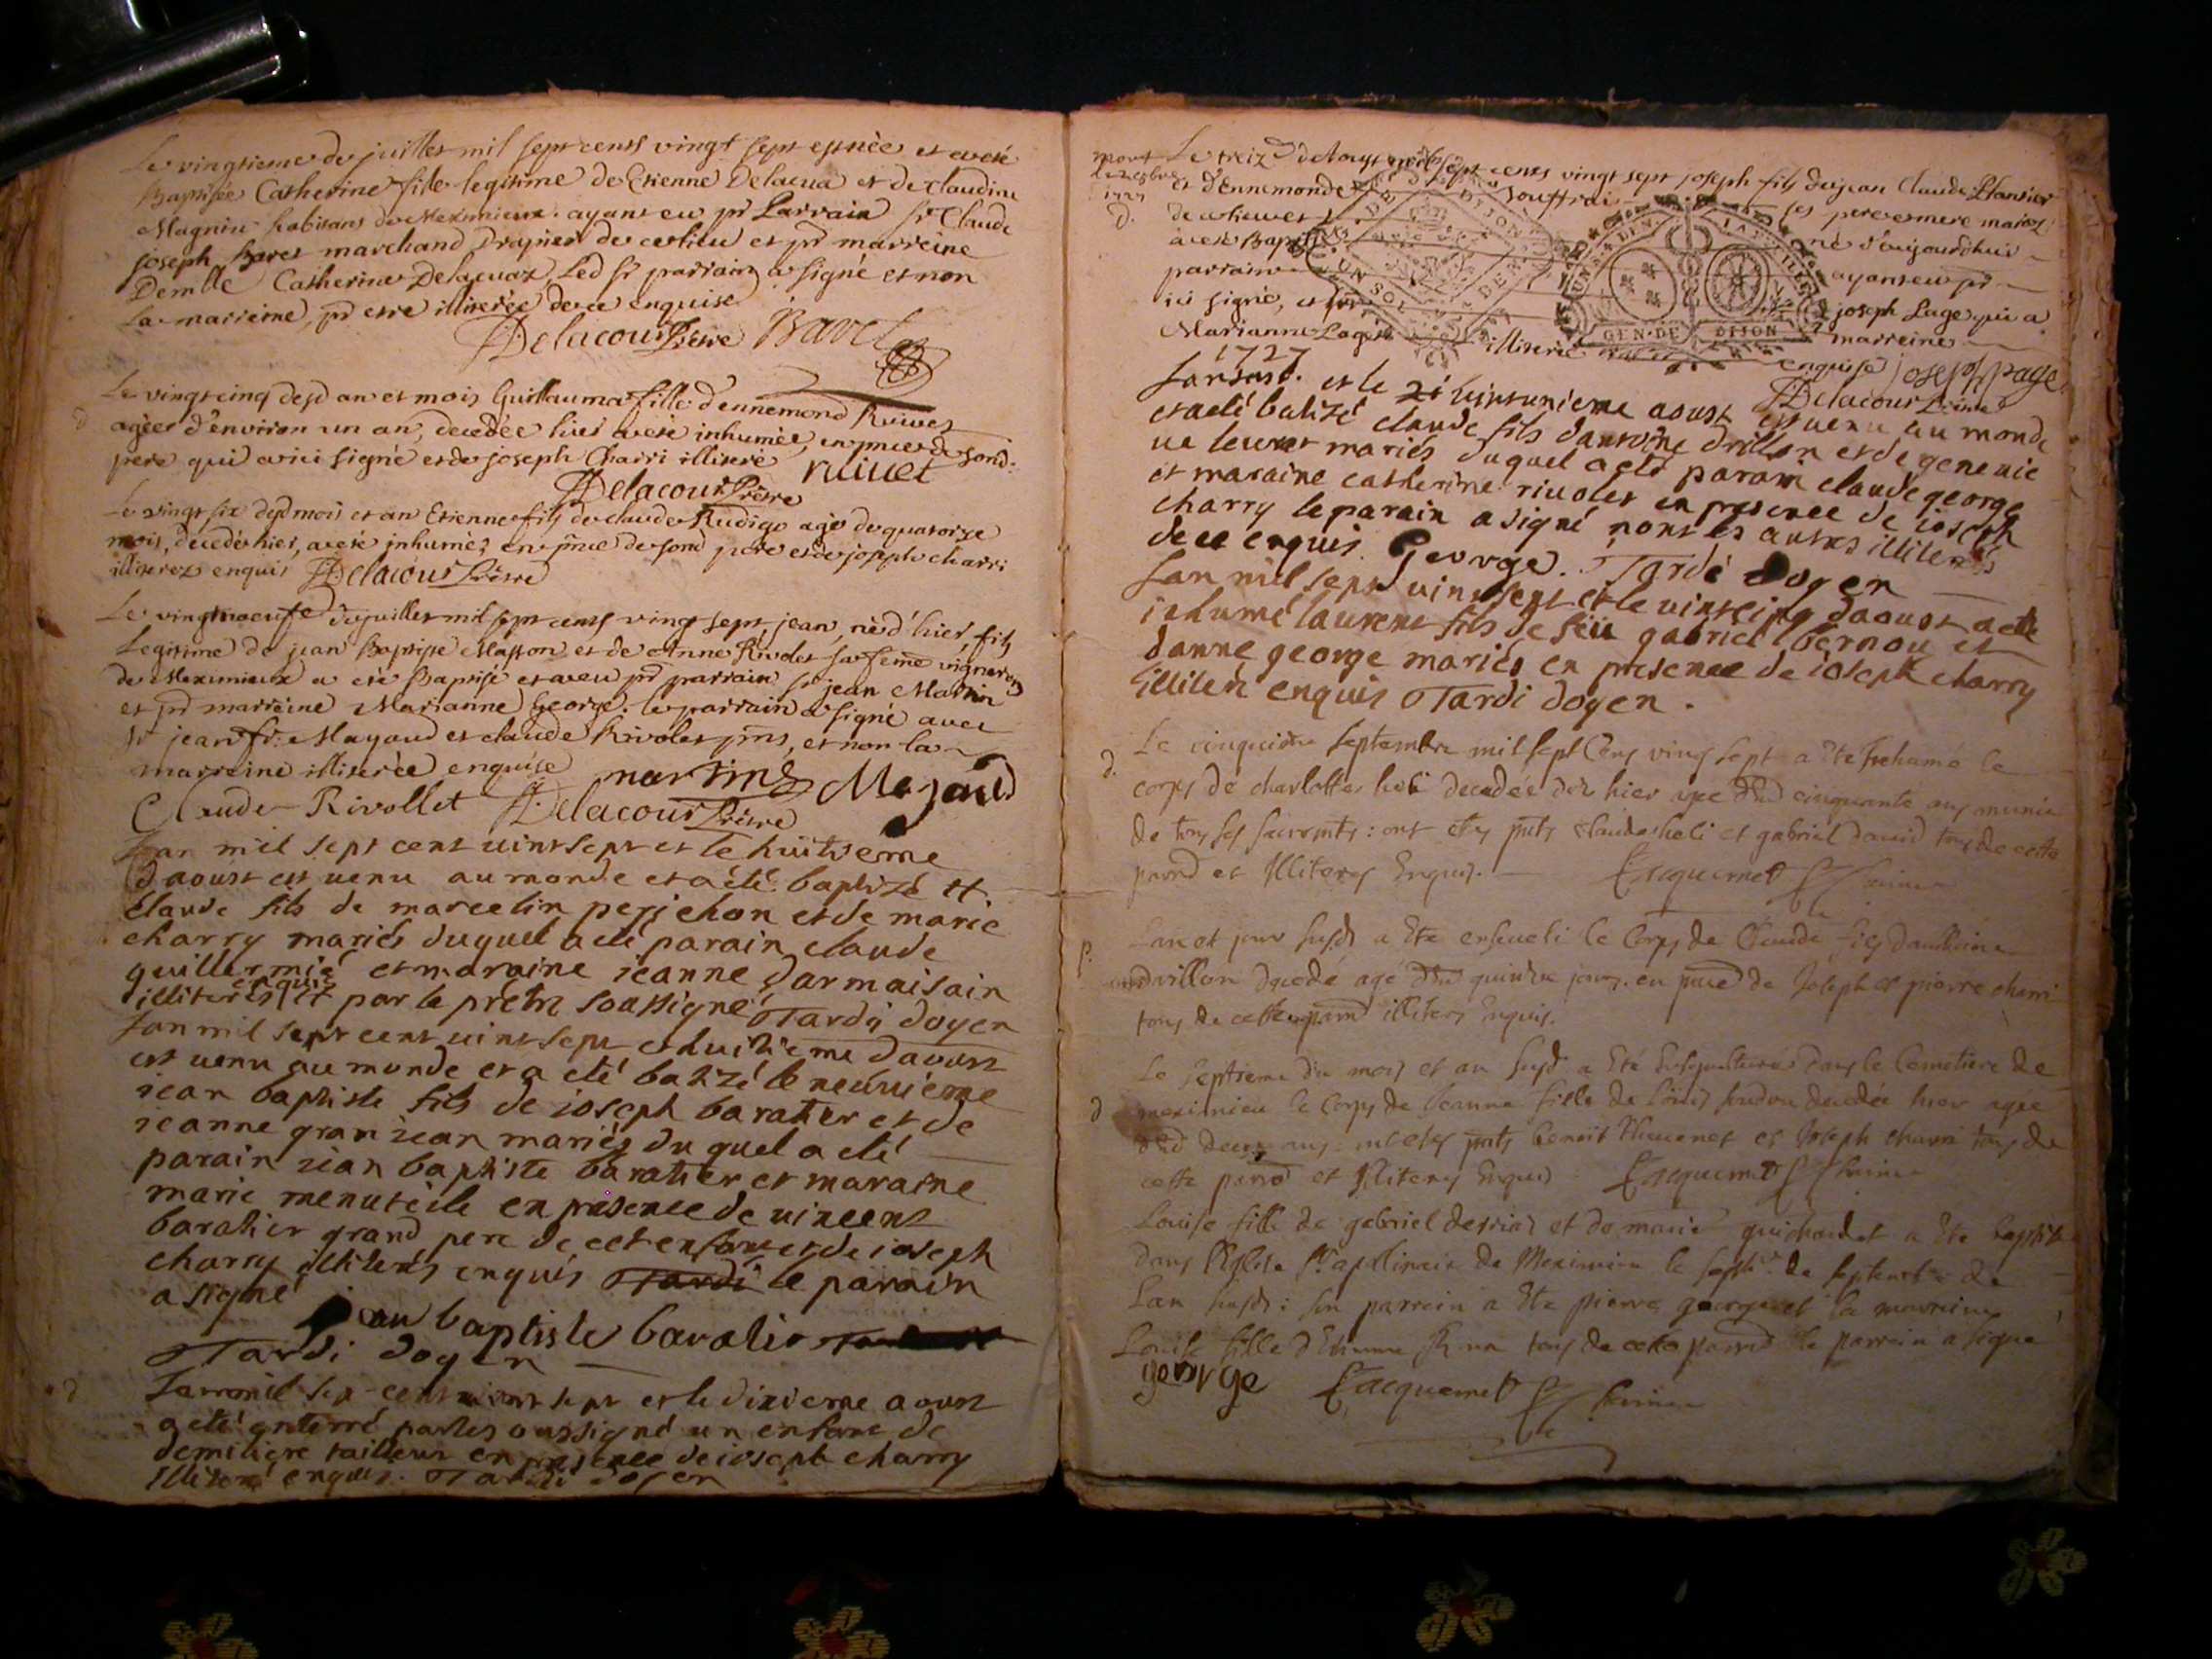 Le vingtieme de juillet mil sept cents vingt sept est née et a eté
Baptisée Catherine fille legitime de Etienne Delacua et de claudine
Magnin habitans de Meximieux. ayant eu pr Parrain Sr Claude
joseph Bavet marchand Drapier de ce lieu et pr marreine
Demlle Catherine Delacuaz, Led Sr parrain a signé et non
La marreine, pr etre illiterée de ce enquise
Delacour Prêtre Bavet
Le vingt cinq desd an et mois Guillauma fille d'ennemond Ruivet
agée d'environ un an, decedée hier a eté inhumée, en pnce de sond.
pere qui a ici signé et de joseph Charri illiteré ruivet
Delacour Prêtre
Le vingt six dud mois et an Etienne fils de claude Rudigo agé de quatorze
mois, decedé hier, a eté inhumé, en pnce de sond pere et de joseph charri
illiterez enquis Delacour Prêtre
Le vingtneufe de juillet mil sept cents vingt sept jean, né d'hier, fils
Legitime de jean Baptiste Masson et de Anne Rivolet sa feme vigneron
de Meximieux a eté Baptisé et a eu pr parrain Sr jean Martin
et pr marreine Marianne George. le parrain a signé avec
Sr jean fr: Mayaud et claude Rivolet pns, et non la
marreine illiterée enquise martin Mejaud
Claude Rivollet Delacour Prêtre
Lan mil sept cent uint sept et le huitieme
d'aoust est uenu au monde et a eté baptizé
claude fils de marcelin perichon et de marie
charry mariés duquel a eté parain claude
guillermié et maraine ieanne darmaisain
illiterés enquis par le prêtre soussigné Tardi doyen
Lan mil sept cent uint sept et huitieme daoust
est uenu au monde et a eté batizé le neuuieme
iean baptiste fils de ioseph baratier et de
ieanne gran iean mariés du quel a eté
parain iean baptiste baratier et maraine
marie menuteile en presence de uincent
baratier grand pere de cet enfant et de ioseph
charry illiterés enquis Tardi le parain
a signé
Jean baptiste baratier
Tardi doyen
d
Lan mil sept cent uint sept et le dixieme aoust
a eté enterré par les oussigné un enfant de
demiliere tailleur en presence de ioseph charry
illiteré enquis. Tardi doyen
mort
1727
d.
Le treize d'Aoust mil sept cents vingt sept joseph fils de jean Claude
et d'Ennemonde Jouffrai ses pere et mere mariez
de ce lieu né d'aujourdhui
a eté Bapt ayant eu pr
parrain joseph Page qui a
ici signé, et marreine
Marianne Page illiterée enquise joseph page
1727 Delacour Prêtre
Lan susd. et le uintunieme aoust est uenu au monde
et a eté batizé claude fils dantoine drillon et de geneuie
ue leuret mariés duquel a eté parain claude george
et maraine catherine riuolet en presence de ioseph
charry le parain a signé nont les autres illiterés
de ce enquis. George. Tardi doyen
Lan mil sept uint sept et le uintcinq daoust a eté
inhumé laurent fils de feu gabriel bernou et
danne george mariés en presence de ioseph charry
illiteré enquis Tardi doyen.
d.
Le cinquieme septembre mil sept Cens vingt sept a ete Inhumé le
corps de charlotte heli decedée dez hier agée dnd cinquante ans munie
de tous ses sacrements: ont etes pnts claude heli et gabriel david tous de cette
paroisse et Illiteres Enquis. Escquemet
p.
Lan et jour susd a Eté enseveli le Corps de Claude fils danthoine
drillon decedé agé dnd quinze jours. en pnce de Joseph et pierre charri
tous de cette paroisse illiteres Enquis.
d
Le Septieme du mois et an susd a Eté dans le Cemetiere de
meximieu le Corps de Jeanne fille de Louis decedée hier agée
dnd deux ans. ont etes pnts benoit Thevenet et Joseph charri tous de
cette paroisse et Illiteres Enquis Escquemet
Louise fille de gabriel derriaz et de marie guichardet a Ete baptisée
dans l'Eglise St apollinaire de Meximieu le septie de septembre de
Lan susd: son parrain a Ete pierre george et la marreine
Louise fille d'Etienne tous de cette paroisse le parrain a signé
george Escquemet
DE DIJON
UN SOL
GEN. DE DIJON